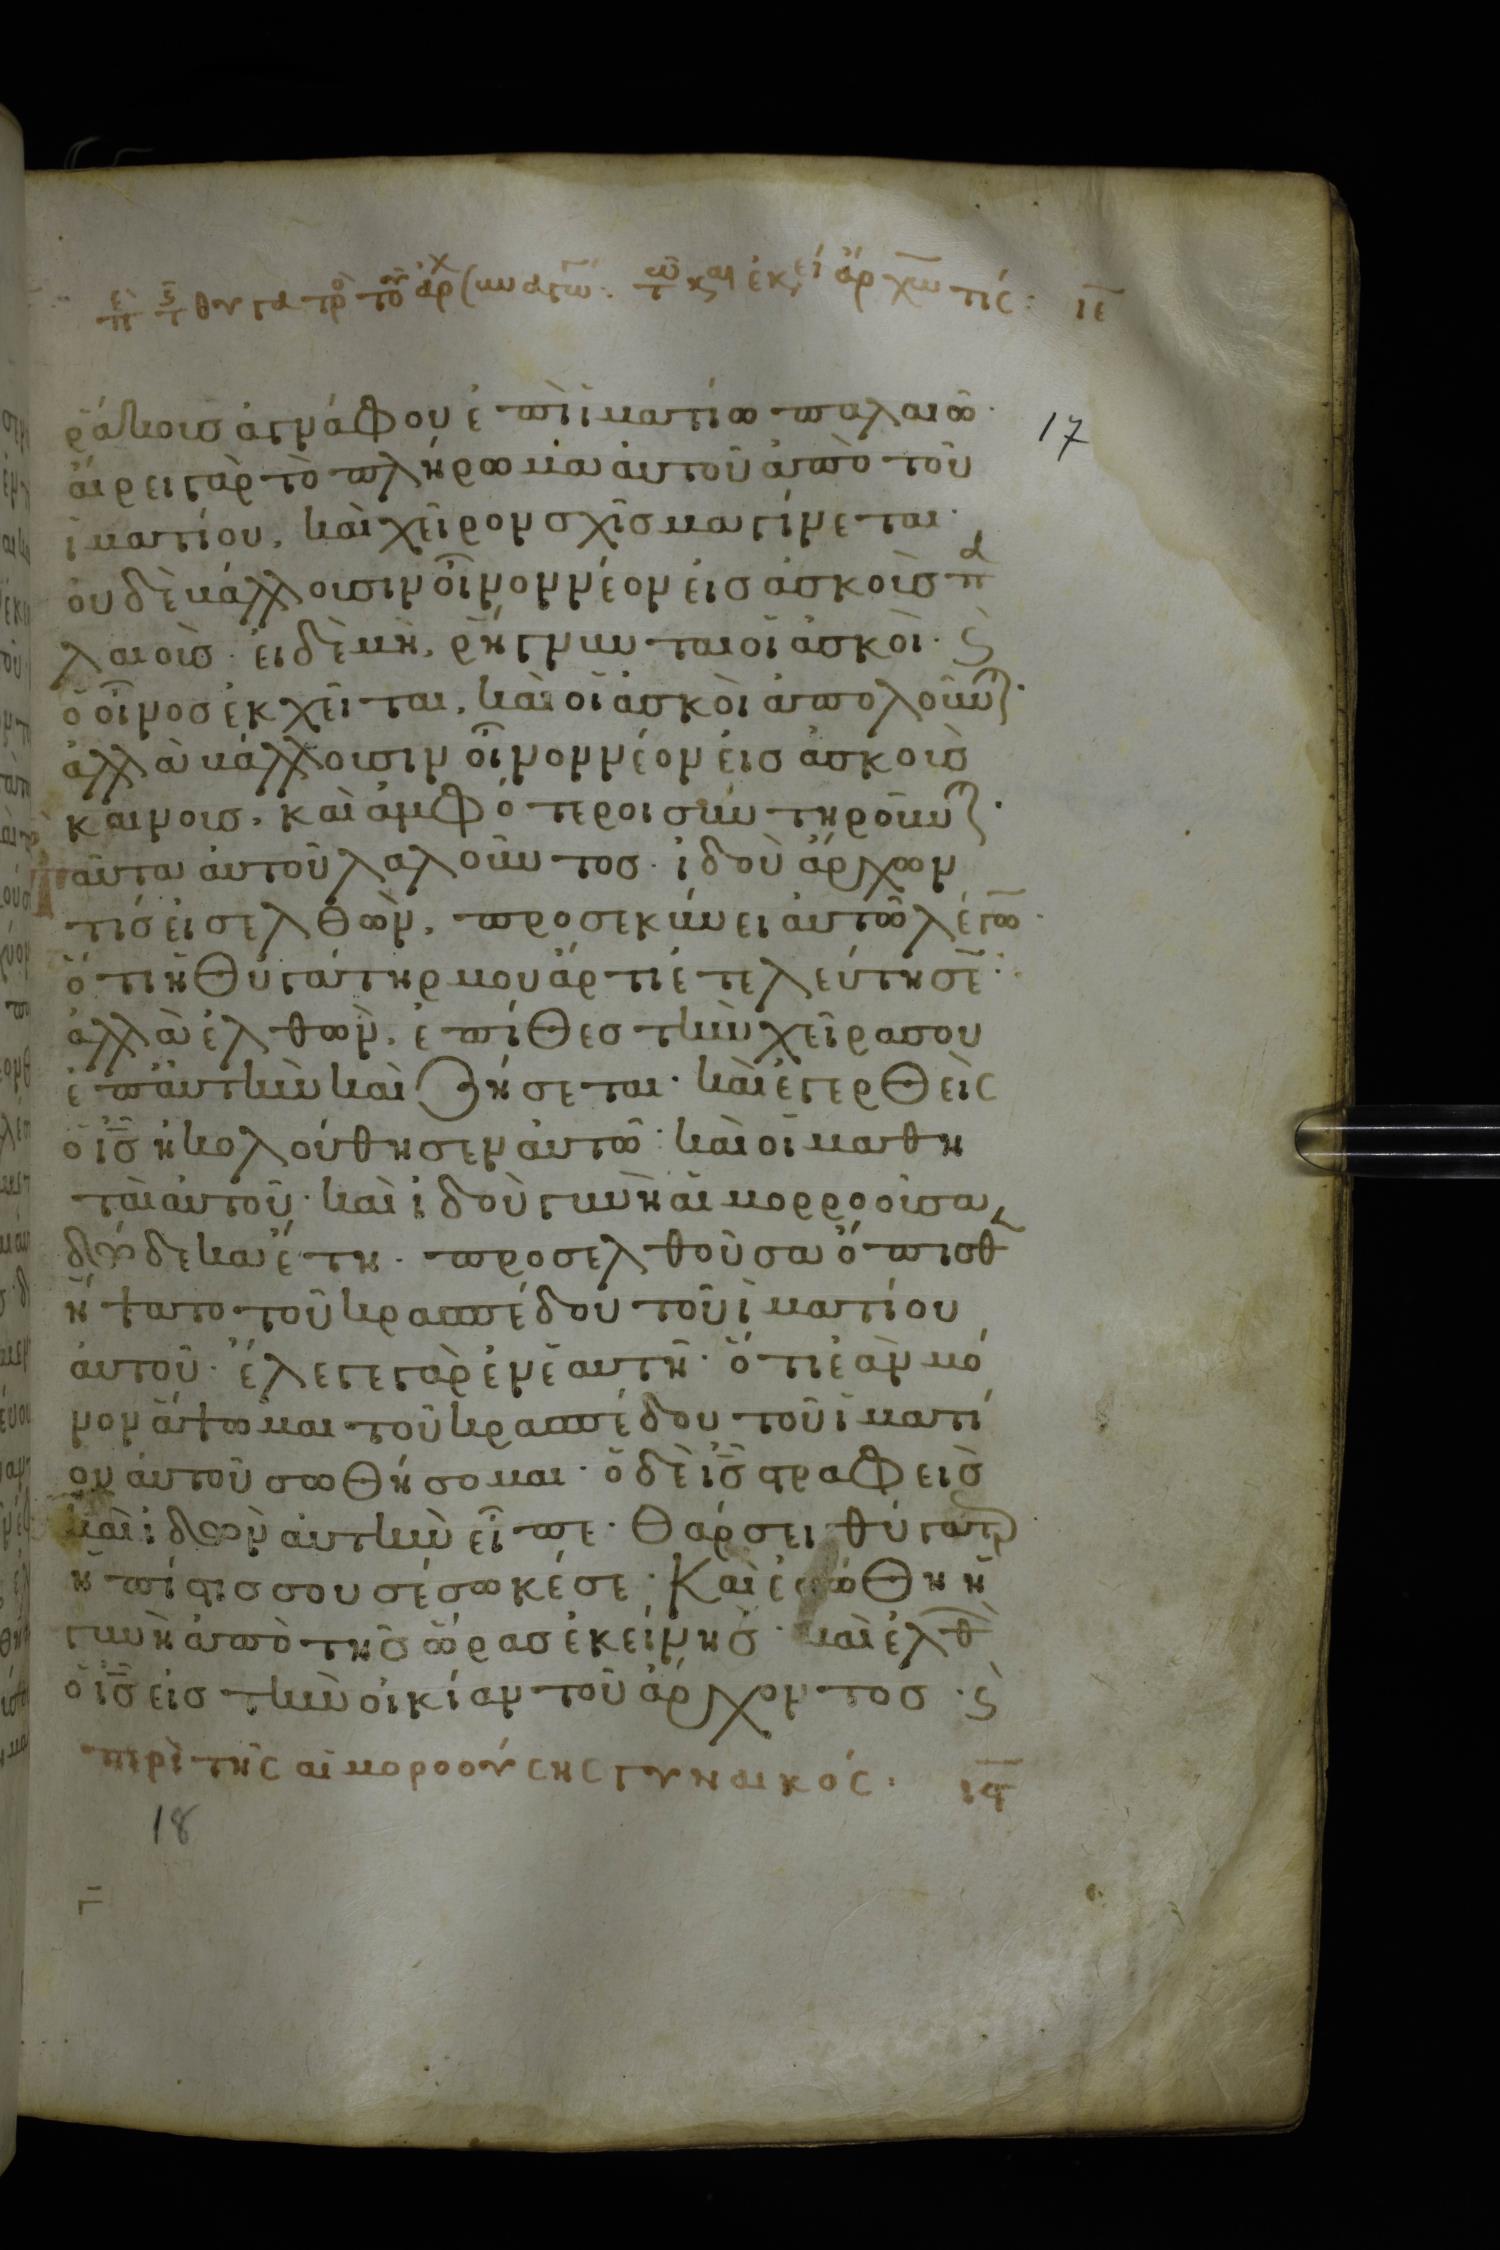 ῥάκουσ ἀγνάφου ἐπὶ ἱματίω παλαιῶ·
αἴρει γὰρ τὸ πλήρωμα αὐτοῦ ἀπὸ τοῦ
ἱματίου, καὶ χεῖρον σχῖσμα γίνεται·
οὐδὲ βάλλουσιν οἶνον νέον εἰσ ἀσκοὺσ πα
λαιοὺσ· εἰ δὲ μὴ, ῥήγνυνται οἱ ἀσκοὶ· ϛ̀
ὁ οἶνοσ ἐκχεῖται, καὶ οἱ ἀσκοὶ ἀπολοῦν̅τ̅·
ἀλλὰ βάλλουσιν οἶνον νέον εἰσ ἀσκοὺσ
καινοὺσ, καὶ ἀμφότεροι συντηροῦν̅τ̅·
αῦτα αὐτοῦ λαλοῦντοσ· ἰδοὺ ἄρχων
τίσ εἰσελθὼν, προσεκύνει αὐτῶ λέγω̅·
ὅτι ἡ θυγάτηρ μου ἄρτι ἐτελεύτησε̅·
ἀλλὰ ἐλθὼν, ἐπίθεσ τὴν χεῖρα σου
ἐπ' αὐτὴν καὶ ζήσεται· καὶ ἐγερθεὶσ
ὁ ι̅σ̅ ἠκολούθησεν αὐτῶ· καὶ οἱ μαθη
ταὶ αὐτοῦ· καὶ ἰδοὺ γυνὴ αἱμορροοῦσα
δώδεκα ἔτη· προσελθοῦσα ὄπισθ
ἥψατο τοῦ κρασπέδου τοῦ ἱματίου
αὐτοῦ· ἔλεγε γὰρ ἐν ἑαυτῆ· ὅτι ἐὰν μό
νον ἅψωμαι τοῦ κρασπέδου τοῦ ἱματί
ου αὐτοῦ σωθήσομαι· ὁ δὲ ι̅σ̅ στραφεισ
καὶ ἰδὼν αὐτὴν εἶπε· θάρσει θύγατ
ἡ πίστισ σου σέσωκέ σε· Καὶ ἐσώθη ἡ
γυνὴ ἀπὸ τῆσ ὥρασ ἐκείνησ· καὶ ἐλθ
ὁ ι̅σ̅ εἰσ τὴν οἰκίαν τοῦ ἄρχοντοσ· ϛ̀
περὶ τῆς αἱμοροούσης γυναικός: ι̅ϛ̅
18
17
ι̅ε̅